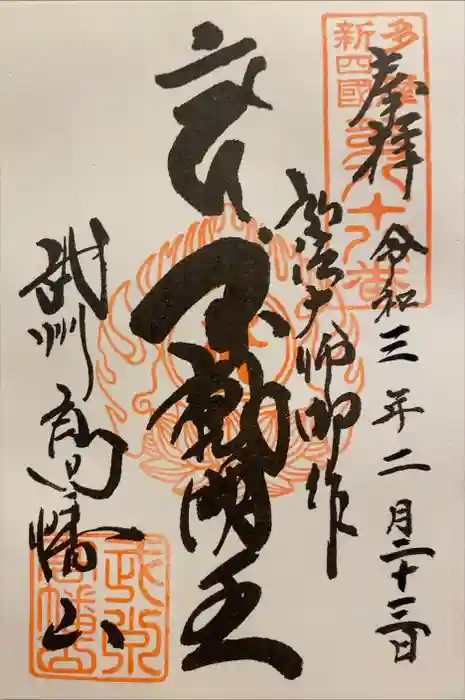 奉拝
令和三年二月二十三日
多摩
新四國
第八十八番
弘法大師御作
不動明王
武州
高幡山
武州
高幡山